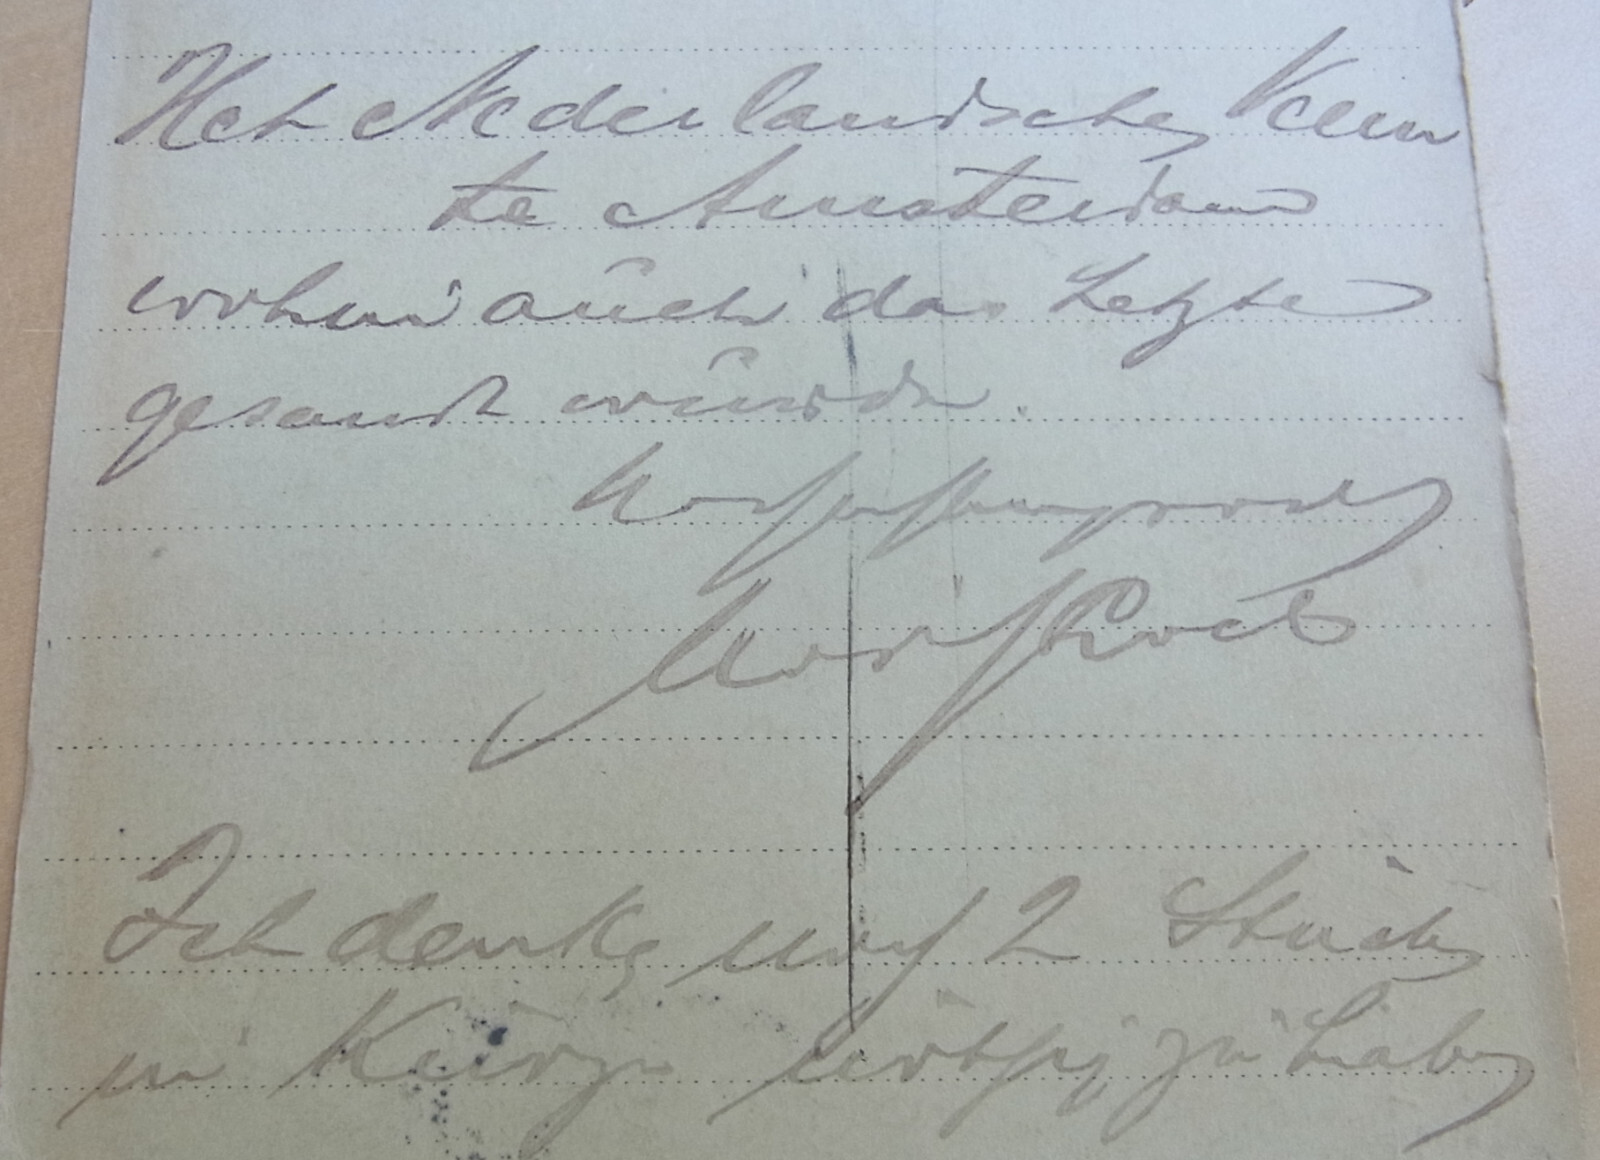 Het Nederlandsche Veem
te Amsterdam
wohin auch das Letzte
gesandt wurde.
Hochachtungsvoll
Ich denke noch 2 Stück
in Kürze nöthig zu haben